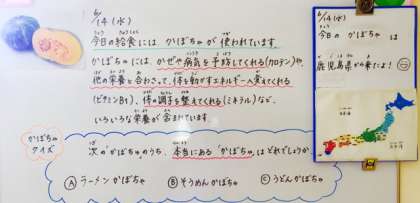 6/14 (水)
今日の給食には かぼちゃが 使われています。
かぼちゃには、かぜや病気を予防してくれる(カロテン)や
他の栄養と合わさって、体を動かすエネルギーへ変えてくれる
(ビタミンB1)、体の調子を整えてくれる(ミネラル)など、
いろいろな栄養が 含まれています。
かぼちゃ
クイズ
次の「かぼちゃ」のうち、本当にある「かぼちゃ」はどれでしょうか
Ⓐ ラーメンかぼちゃ Ⓑ そうめんかぼちゃ Ⓒ うどんかぼちゃ
6/14 (水)
今日の かぼちゃ は
鹿児島県から来たよ!